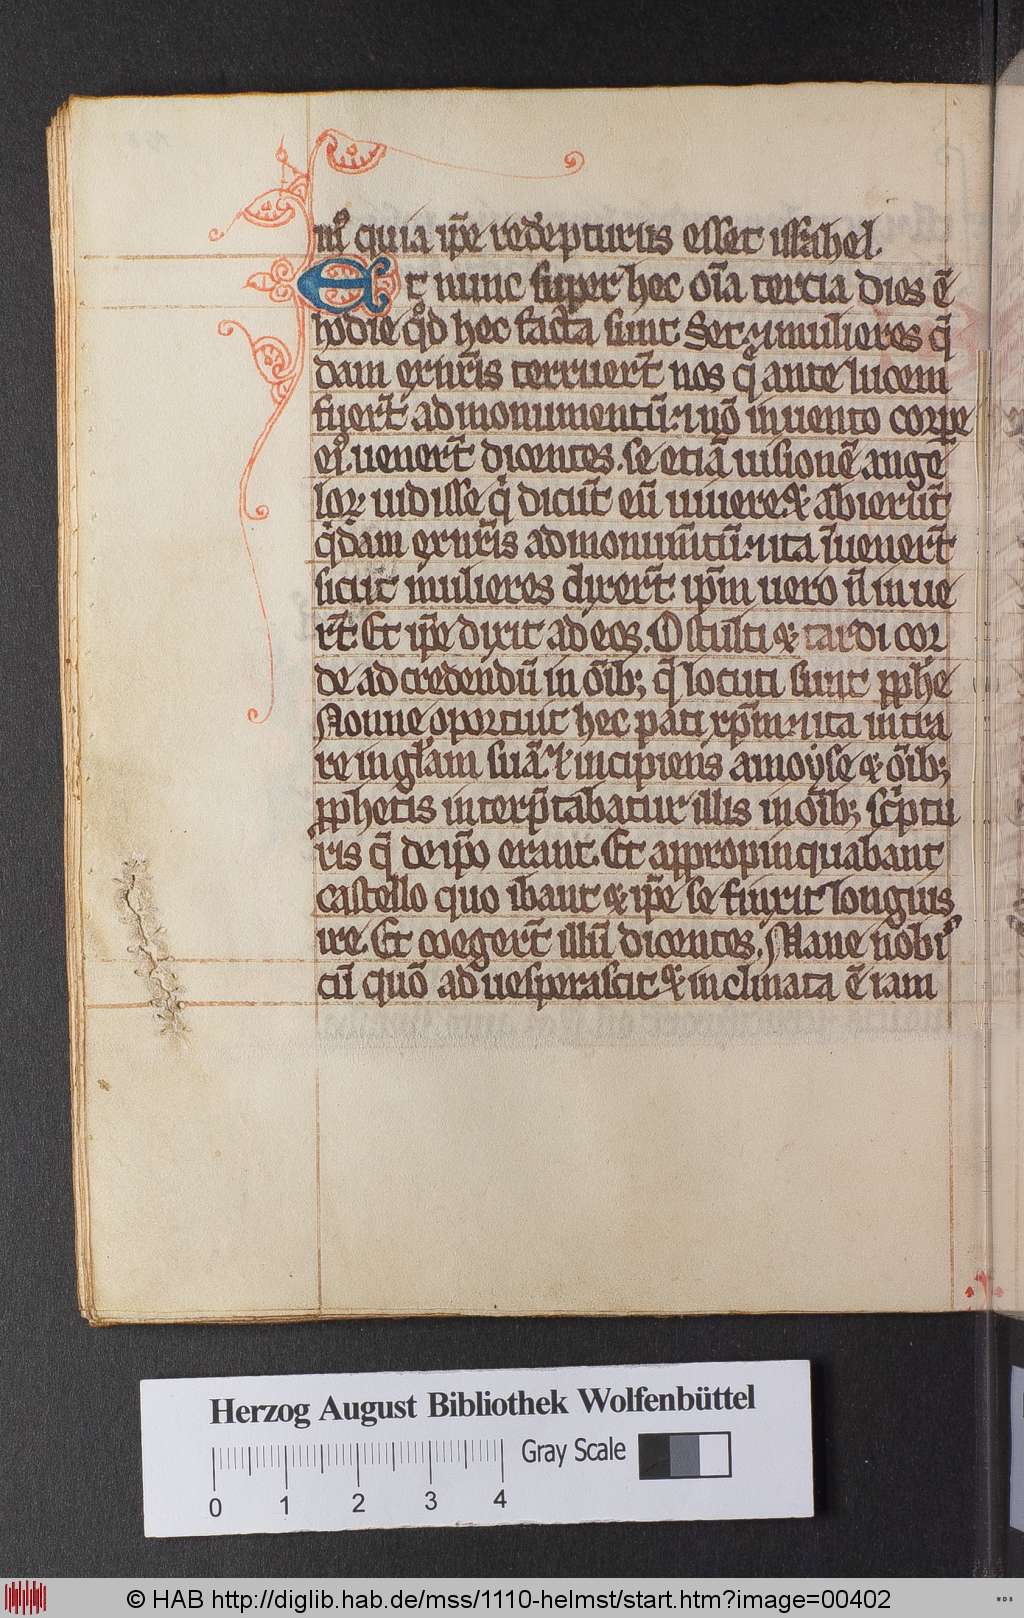 mꝰ quia ip̄e redēpturus esset isrl̄ahel.
Et nunc super hec oīa tercia dies ē
hodie qͦd hec facta sunt. Set ⁊ mulieres q̄
dam ex nr̄is terruert̄ nos q̄ ante lucem
fuert̄ ad monumentū. ⁊ nō inuento corpe
eiꝰ. uenert̄ dicentes. se etiā uisionē ange
loꝝ uidisse qͥ dicūt eū uiuere. & abierūt
qͥdam ex nr̄is ad monum̄tū. ⁊ ita īuenert̄
sicut mulieres dixert̄ ip̄m uero n̄ inue
rt̄. Et ip̄e dixit ad eos. O stulti & tardi cor
de ad credendū in oīb; q̄ locuti sunt ꝓphē
Nonne oportuit hec pati xp̄m. ⁊ ita intra
re in gl̄am suā. Et incipiens a moyse & oīb;
ꝓphetis interp̄tabatur illis in oīb; scͥptu
ris q̄ de ip̄o erant. Et appropinquabant
castello quo ibant & ip̄e se finxit longius
ire. Et coegert̄ illū dicentes. Mane nobiͨ
cū quō aduesperascit & inclinata ē iam
Herzog August Bibliothek Wolfenbüttel
Gray Scale
0 1 2 3 4
© HAB http://diglib.hab.de/mss/1110-helmst/start.htm?image=00402